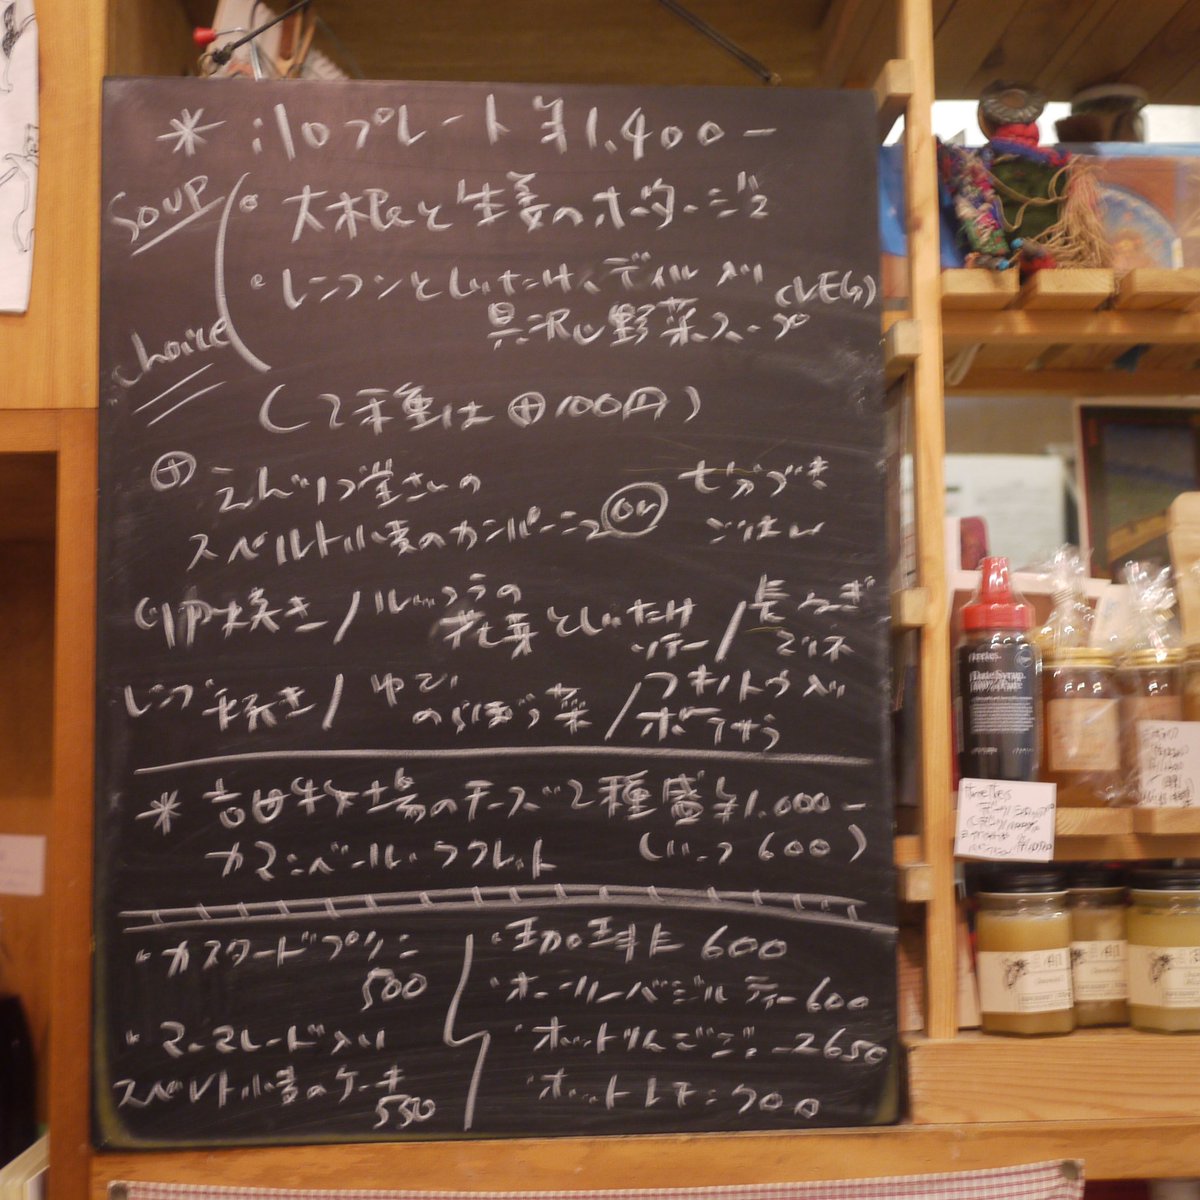 * iloプレート ¥1,400-
Soup
・大根と生姜のポタージュ
・レンコンとしいたけ、ディル入り
具沢山野菜スープ
choice
(2種は⊕100円)
⊕
スペルト小麦のカンパーニュ
or
七分づき
ごはん
卵焼き/ルッコラの
花芽としいたけ
ソテー/長ねぎ
マリネ
レンズ
ゆでい
のらぼう菜
ポテサラ
* 吉田牧場のチーズ2種盛 ¥1,000-
カマンベール・ラクレット
(ハーフ 600)
・カスタードプリン
500
・マーマレード入り
スペルト小麦のケーキ
550
・珈琲 600
・ホーリーバジルティー 600
・ホットりんごジュース 650
・ホットレモン 700
Date Syrup